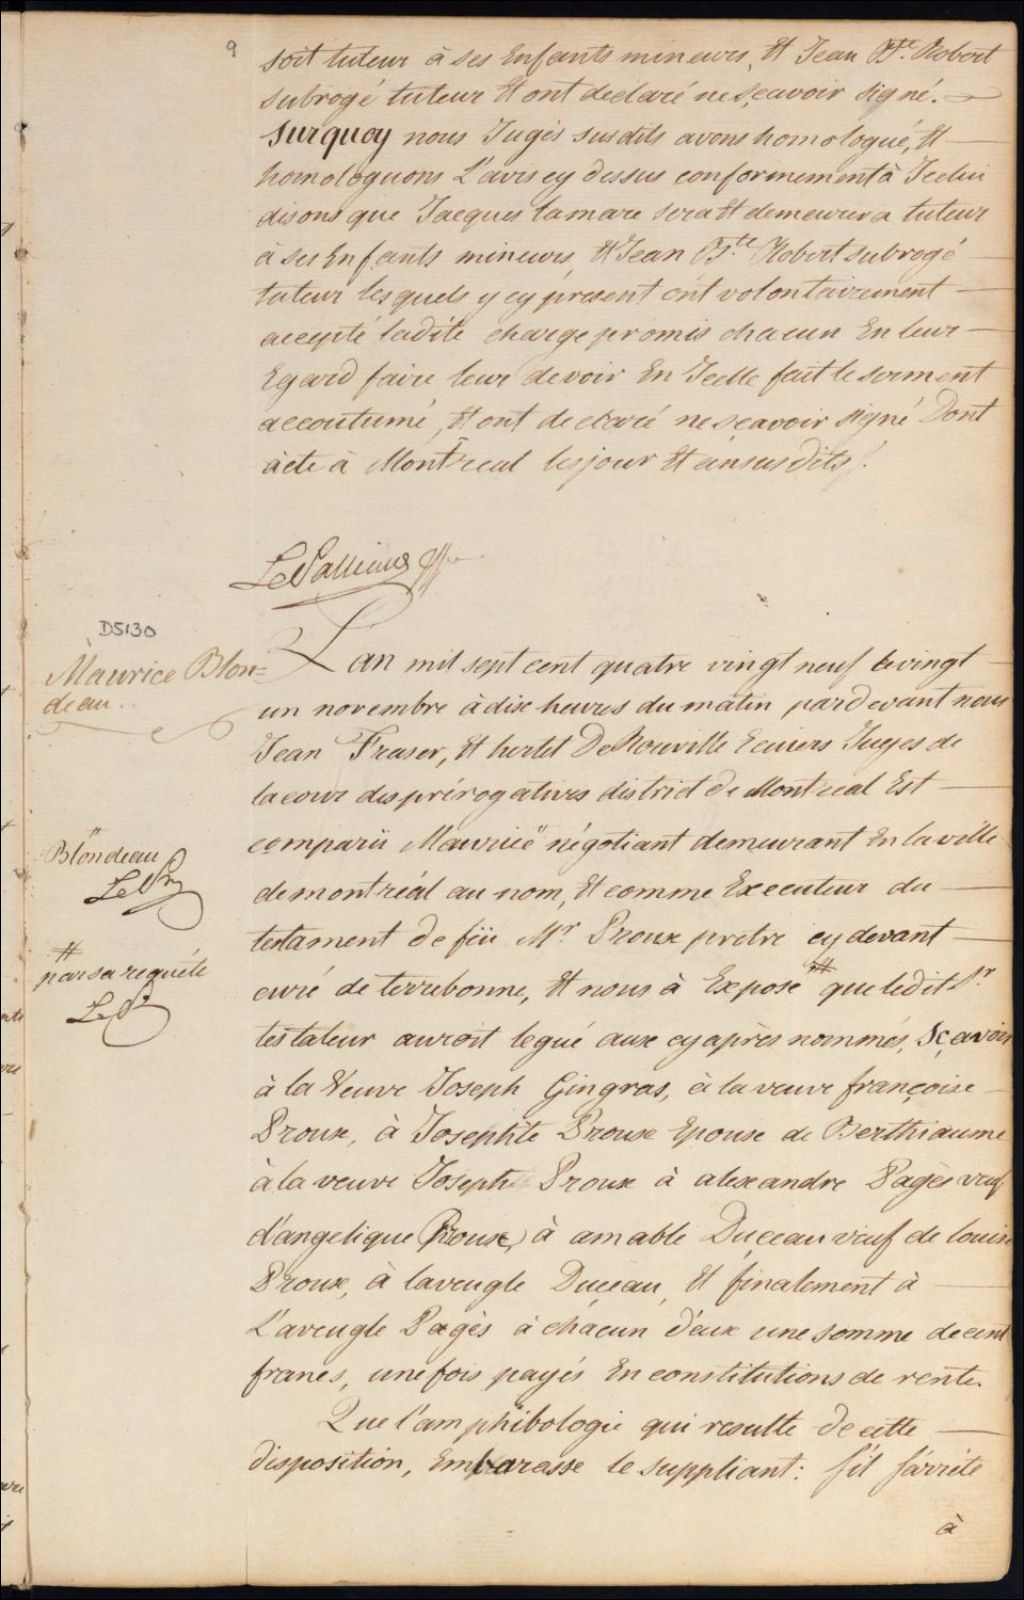 9
soit tuteur à ses Enfants mineurs, Et Jean Bte. Robert
subrogé tuteur Et ont declaré ne sçavoir signé.
Surquoy nous Jugés susdits avons homologué, Et
homologuons L'avis cy dessus conformement à Icelui
disons que Jacques Lamare sera Et demeurera tuteur
à ses Enfants mineurs, Et Jean Bte. Robert subrogé
tuteur lesquels y cy present ont volontairement
accepté ladite charge promis chacun En leur
Egard faire leur devoir En Icelle fait le serment
accoutumé, Et ont declaré ne sçavoir signé Dont
acte à Montreal les jour Et an susdits.
LePallieur
D5130
Maurice Blon=
deau.
Lan mil sept cent quatre vingt neuf le vingt
un novembre à dix heures du matin pardevant nous
Jean Fraser, Et hertel DeRouville Ecuiers Juges de
la cour des prérogatives district de Montreal Est
comparü Maurice " négotiant demeurant En la ville
" Blondeau
de montréal au nom, Et comme Executeur du
testament de feü Mr. Proux pretre cy devant
curé de terrebonne, Et nous à Exposé # que ledit Sr.
# par sa requéte
testateur auroit legué aux cy après nommés, Sçavoir
à la Veuve Joseph Gingras, à la veuve françoise
Proux, à Josephte Proux Epouse de Berthiaume
à la veuve Joseph Proux à alexandre Pagès veuf
d'angelique Proux, à amable Duçeau veuf de louise
Proux, à laveugle Duçeau, Et finalement à
L'aveugle Pagès à chacun d'eux une somme de cent
francs, une fois payés En constitutions de rente.
Que l'amphibologie qui resulte de cette
disposition, Embarasse le suppliant: s'il s'arrête
à